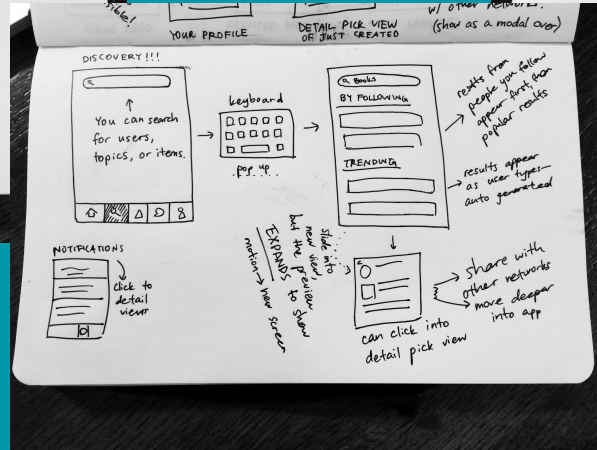 sible!
w/ other networks.
(show as a modal over)
YOUR PROFILE
DETAIL PICK VIEW
OF JUST CREATED
DISCOVERY!!!
You can search
for users,
topics, or items.
keyboard
pop up...
Books
BY FOLLOWING
TRENDING
results from
people you follow
appear first, then
popular results
results appear
as user types—
auto generated
NOTIFICATIONS
click to
detail
views
slide into
new view,
but the preview
EXPANDS to show
motion → new screen
can click into
detail pick view
share with
other networks
move deeper
into app